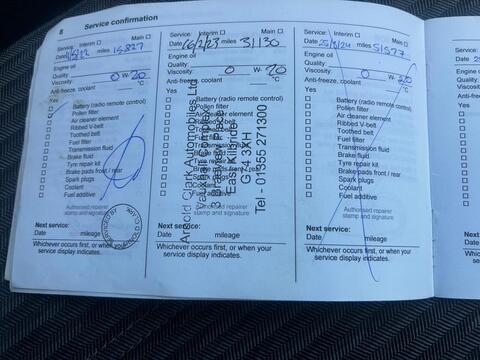 8
Service confirmation
Service: Interim ☐ Main ☐
Date miles 15,827
Engine oil
Quality:
Viscosity: 0 W- 20
Anti-freeze, coolant °C
Yes
☐ Battery (radio remote control)
☐ Pollen filter
☐ Air cleaner element
☐ Ribbed V-belt
☐ Toothed belt
☐ Fuel filter
☐ Transmission fluid
☐ Brake fluid
☐ Tyre repair kit
☐ Brake pads front / rear
☐ Spark plugs
☐ Coolant
☐ Fuel additive
Authorised repairer
stamp and signature
Next service:
Date mileage
Whichever occurs first, or when your
service display indicates.
Service: Interim ☐ Main ☐
Date 16/2/23 miles 31130
Engine oil
Quality:
Viscosity: 0 W- 20
Anti-freeze, coolant °C
Yes
☐ Battery (radio remote control)
☐ Pollen filter
☐ Air cleaner element
☐ Ribbed V-belt
☐ Toothed belt
☐ Fuel filter
☐ Transmission fluid
☐ Brake fluid
☐ Tyre repair kit
☐ Brake pads front / rear
☐ Spark plugs
☐ Coolant
☐ Fuel additive
Arnold Clark Automobiles Ltd
East Kilbride
G74 3XH
Tel - 01355 271300
Authorised repairer
stamp and signature
Next service:
Date mileage
Whichever occurs first, or when your
service display indicates.
Service: Interim ☐ Main ☐
Date 25/8/24 miles 51577
Engine oil
Quality:
Viscosity: 0 W-
Anti-freeze, coolant °C
Yes
☐ Battery (radio remote control)
☐ Pollen filter
☐ Air cleaner element
☐ Ribbed V-belt
☐ Toothed belt
☐ Fuel filter
☐ Transmission fluid
☐ Brake fluid
☐ Tyre repair kit
☐ Brake pads front / rear
☐ Spark plugs
☐ Coolant
☐ Fuel additive
Authorised repairer
stamp and signature
Next service:
Date mileage
Whichever occurs first, or when your
service display indicates.